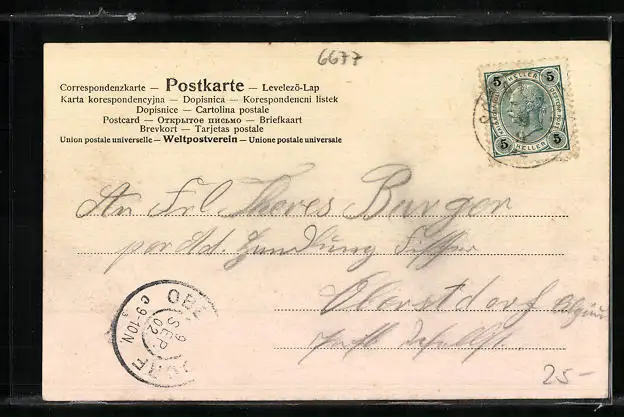 6677
Correspondenzkarte — Postkarte — Levelező-Lap
Karta korespondencyjna — Dopisnica — Korespondencni listek
Dopisnice — Cartolina postale
Postcard — Открытое письмо — Briefkaart
Brevkort — Tarjetas postale
Union postale universelle — Weltpostverein — Unione postale universale
5 HELLER 5
5 HELLER 5
An Frl Theres Burger
per Ad. Handlung
Oberstdorf
OBE
9
SEP.
02
9-10N
25-